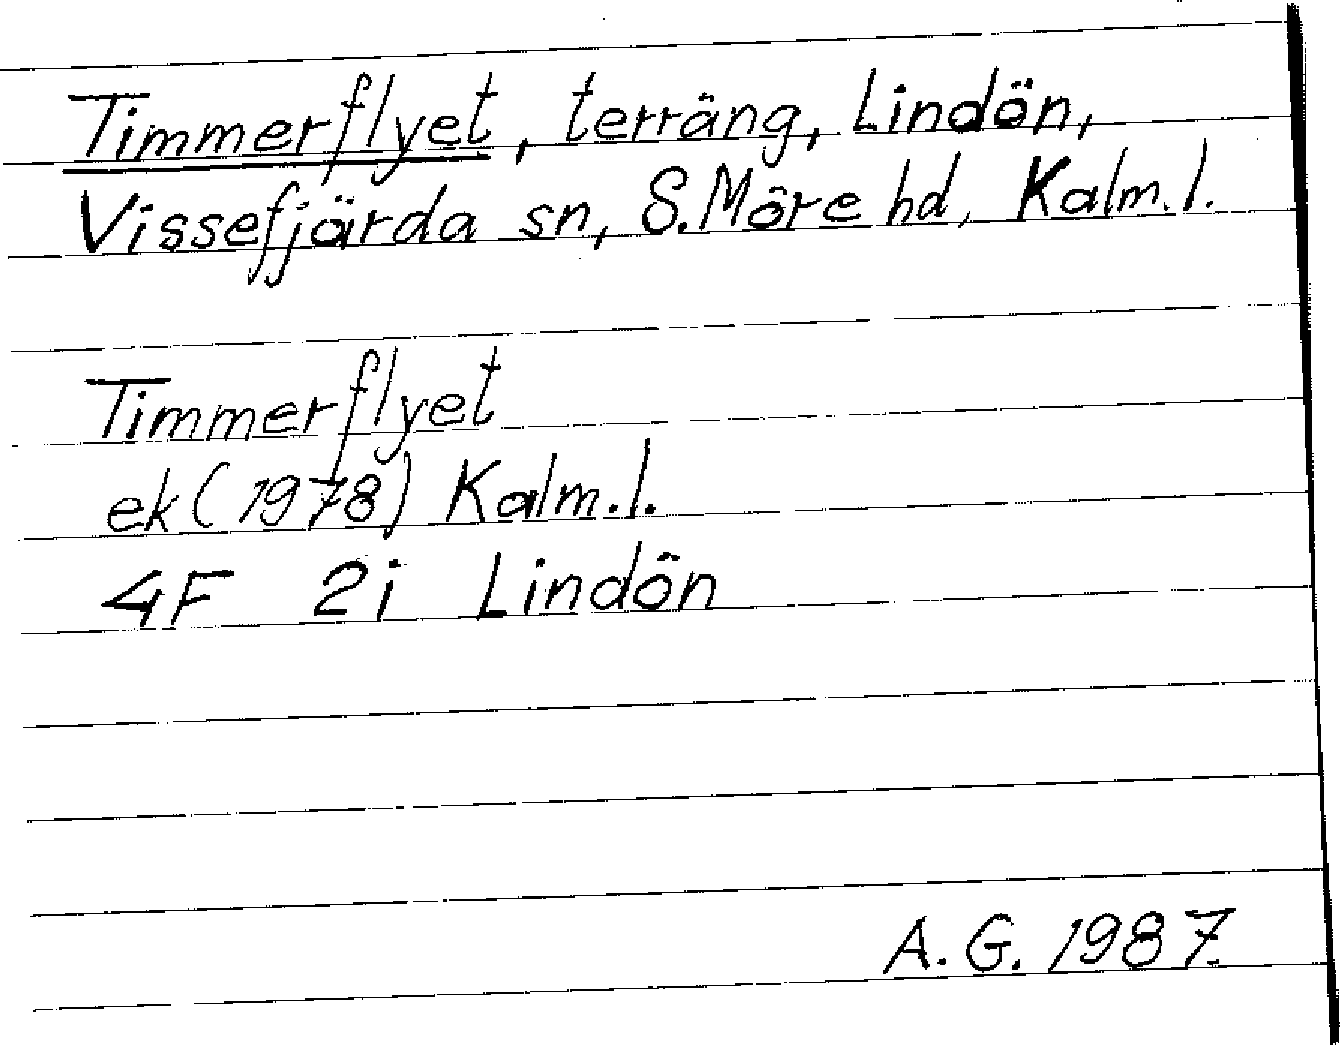 Timmerflyet, terräng, Lindön,
Vissefjärda sn, S. Möre hd, Kalm. l.
Timmerflyet
ek (1978) Kalm. l.
4F 2i Lindön
A. G. 1987.